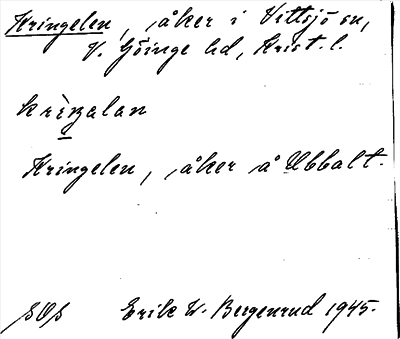 Kringelen, åker i Vittsjö sn,
V. Göinge hd, Krist. l.
krìŋalan
Kringelen, åker å Ubbalt.
Erik W. Bergenrud 1945.